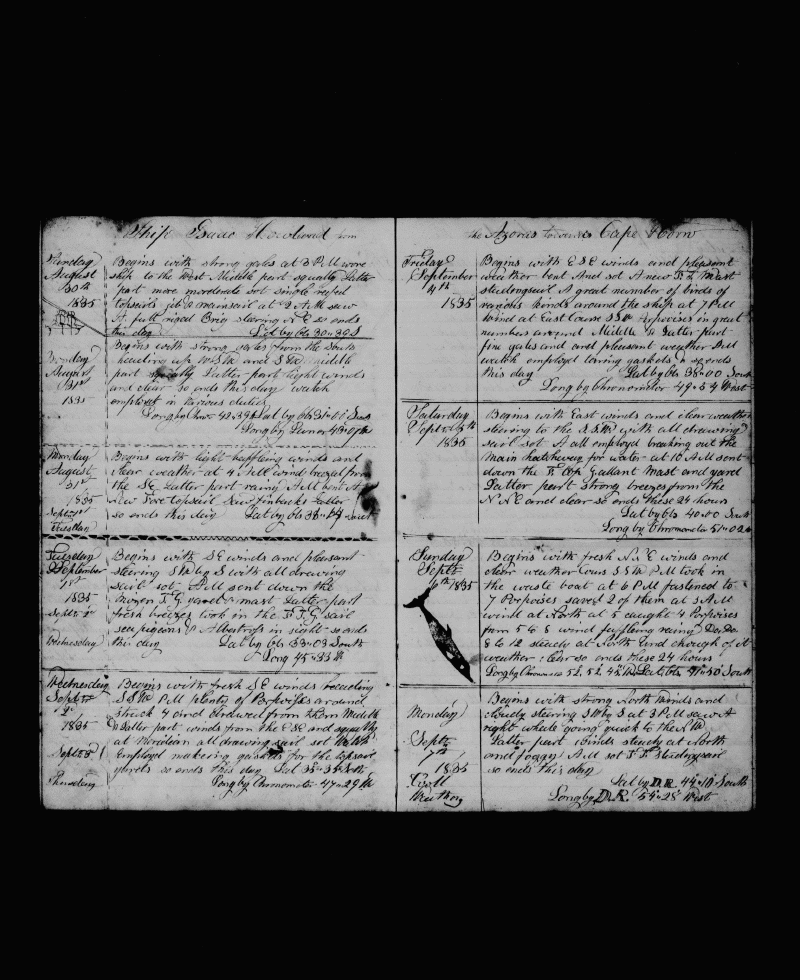 Ship Isaac Howland from
Sunday
August
30th
1835
Begins with strong gales at 3 P.M wore
ship to the West Middle part squally Latter
part more moderate set single reefed
topsails jib & mainsail at 2 A.M saw
A full riged Brig steering N E so ends
this day Lat by obs 30=39 S
Monday
August
31st
1835
Begins with strong gales from the South
heading up W S W and S W middle
part squally Latter part light winds
and clear so ends this day watch
employd in various duties
Lat by obs South
Long by Lunar
Monday
August
31st
1835
Sept 1st
Tuesday
Begins with light baffling winds and
clear weather at 4 P.M wind breezed from
the S E Latter part rainy A.M bent A
New Fore topsail Saw finbacks Latter
so ends this day Lat by obs South
Tuesday
September
1st
1835
Sept 2d
Wednesday
Begins with S E winds and pleasant
steering S W by S with all drawing
sail set P.M sent down the
Mizen T G yard & mast Latter part
fresh breezes took in the F T G sail
sea pigeons & Albatross in sight so ends
this day Lat by obs 33=03 South
Long 45=33 W
Wednesday
Sept
2d
1835
Sept 3d
Thursday
Begins with fresh S E winds heading
S S W P.M plenty of Porpoises around
struck 4 and drawed from them Middle
& Latter part winds from the E S E and squally
at Meridian all drawing sail set Watch
Employd makeing gaskets for the topsail
yards so ends this day Lat 35=35 South
Long by Chronometer 47=29 W
the Azores towards Cape Horn
Friday
September
4th
1835
Begins with E S E winds and pleasant
weather bent And set A new F T Mast
studingsail A great number of birds of
various kinds around the ship at 7 P.M
wind at East Course S S W Porpoises in great
numbers around Middle & Latter part
fine gales and and pleasant weather A.M
watch employd gaskets so ends
this day Lat by obs 38=00 South
Long by Chronometer 49=54 West
Saturday
Sept 5th
1835
Begins with East winds and clear weather
steering to the S S W with all drawing
sail set A all employd breaking out the
main hatchway for water at 10 A.M sent
down the F Top Gallant Mast and yard
Latter part strong breezes from the
N N E and clear so ends these 24 hours
Lat by obs 40=00 South
Long by Chronometer 51=02
Sunday
Septr
6th 1835
Begins with fresh N N E winds and
clear weather cours S S W P.M took in
the waste boat at 6 P.M fastened to
7 Porpoises saved 2 of them at 3 A.M
wind at North at 5 caught 4 Porpoises
from 5 to 8 wind baffling raing Do Do
8 to 12 steady at North And though of it
weather clear so ends these 24 hours
Long by Chronometer 52, 52, 45 W Lat obs 41=50 South
Monday
Septr
7th
1835
Cool
Weather
Begins with strong North Winds and
cloudy steering S W by S at 3 P.M saw A
right whale going quick to the N W
Latter part Winds steady at North
and foggy A.M set F T Studingsail
so ends this day
Lat by D.R. 44=10 South
Long by D.R. 54=28 West